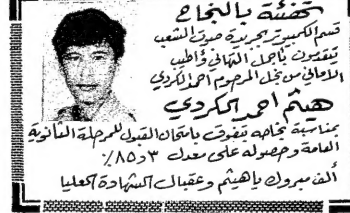 تهنئة بالنجاح
قسم الكمبيوتر بجريدة صوت الشعب
يتقدمون بأجمل التهاني وأطيب
الأماني من نجل المرحوم احمد الكردي
هيثم احمد الكردي
بمناسبة نجاحه بتفوق بامتحان القبول للمرحلة الثانوية
العامة وحصوله على معدل ٨٥٫٣٪
ألف مبروك يا هيثم وعقبال الشهادة العليا